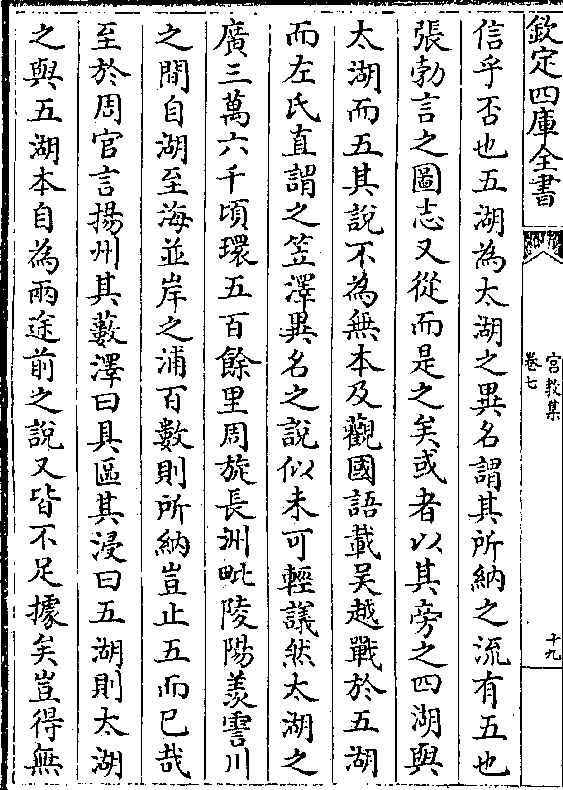 欽定四庫全書
宮教集
卷七
十九
信乎否也五湖為太湖之異名謂其所納之流有五也
張勃言之圖志又從而是之矣或者以其旁之四湖與
太湖而五其說不為無本及觀國語載吴越戰於五湖
而左氏直謂之笠澤異名之說似未可輕議然太湖之
廣三萬六千頃環五百餘里周旋長洲毗陵陽羨霅川
之間自湖至海並岸之浦百數則所納豈止五而已哉
至於周官言揚州其藪澤曰具區其浸曰五湖則太湖
之與五湖本自為兩途前之說又皆不足據矣豈得無